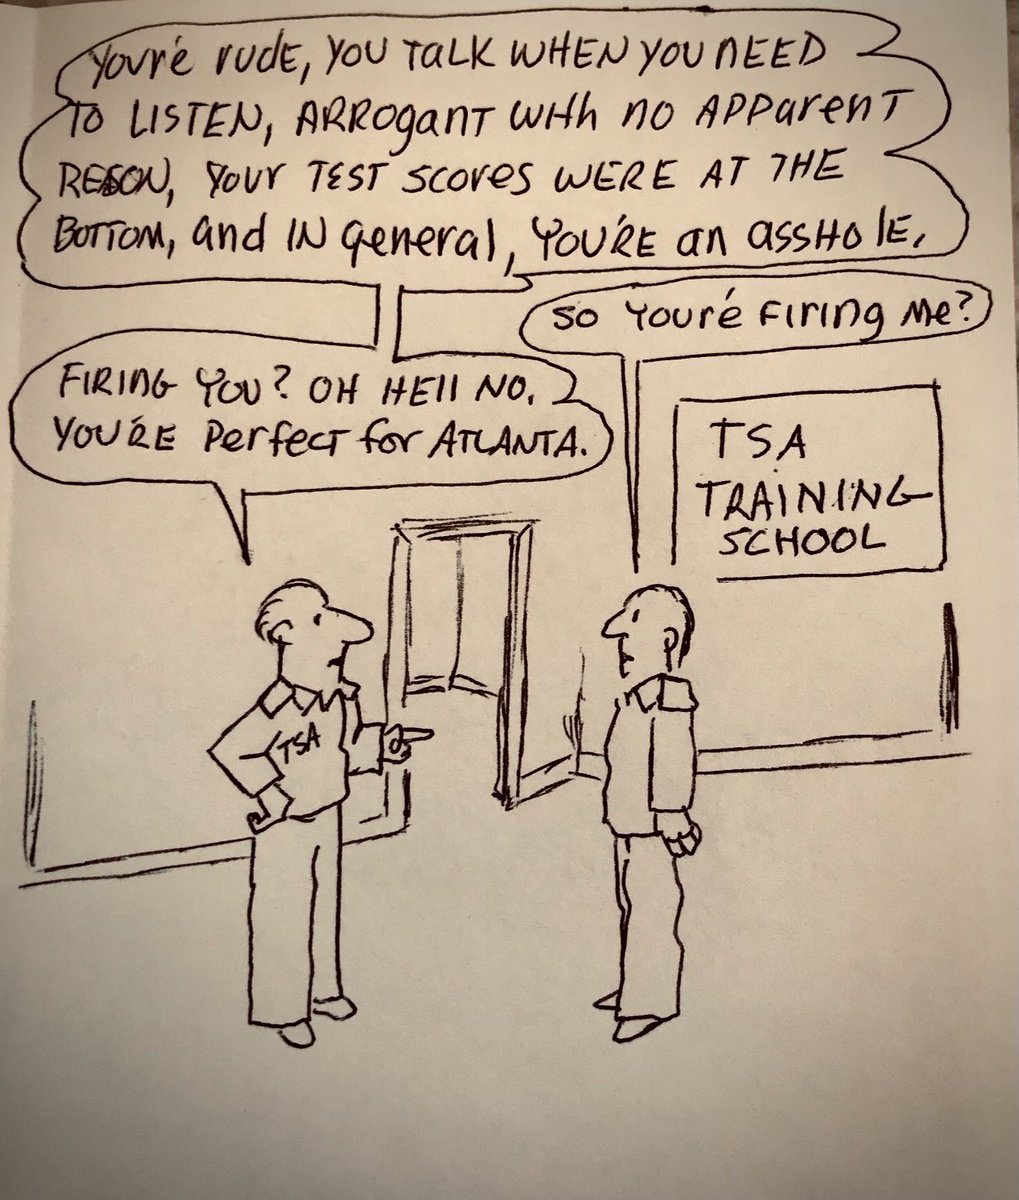 You're rude, you talk when you need
to listen, arrogant with no apparent
reason, your test scores were at the
bottom, and in general, you're an asshole.
So you're firing me?
Firing you? Oh hell no.
You're perfect for Atlanta.
TSA
TRAINING
SCHOOL
TSA